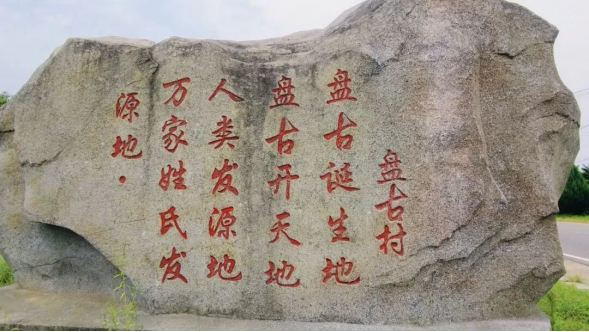 盘古村
盘古诞生地
盘古开天地
人类发源地
万家姓氏发
源地.